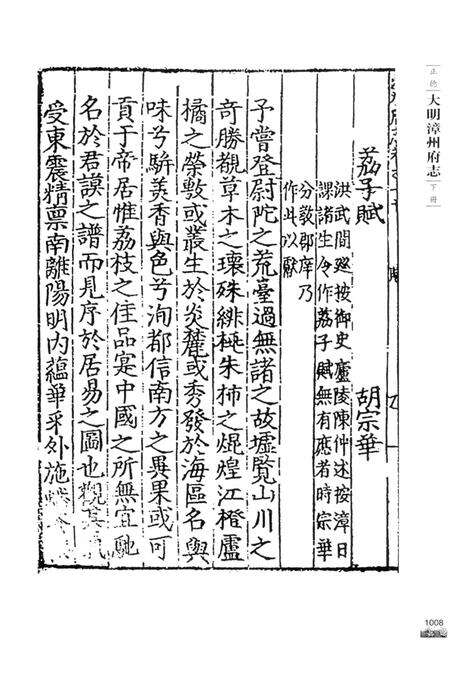 正德 大明漳州府志 下冊
荔子賦 胡宗華
洪武間廵按御史廬陵陳仲述按漳日
課諸生令作荔子賦無有應者時宗華
分敎郡庠乃
作此以獻
予嘗登尉陀之荒臺過無諸之故墟覽山川之
奇勝觀草木之瓌殊緋桃朱柿之焜煌江橙盧
橘之榮敷或叢生於炎麓或秀發於海區名與
味兮騈美香與色兮洵都信南方之異果或可
貢于帝居惟荔枝之佳品寔中國之所無宜馳
名於君謨之譜而見序於居易之圖也觀其
受東震精禀南離陽明內蘊華采外施
1008